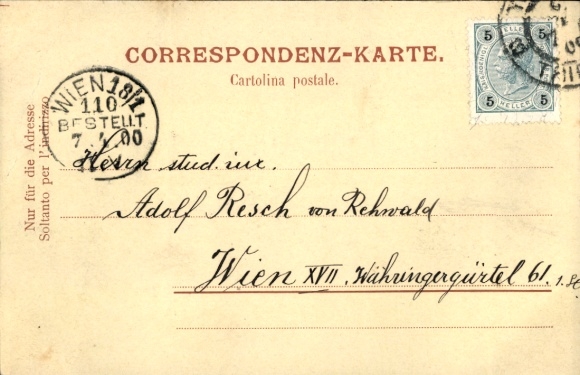 CORRESPONDENZ-KARTE.
Cartolina postale.
Nur für die Adresse
Soltanto per l'indirizzo
5 5
5 HELLER 5
WIEN 18/1
110
BESTELLT
7. 00
Herrn stud. iur.
Adolf Resch von Rehwald
Wien XVII, Währingergürtel 61.